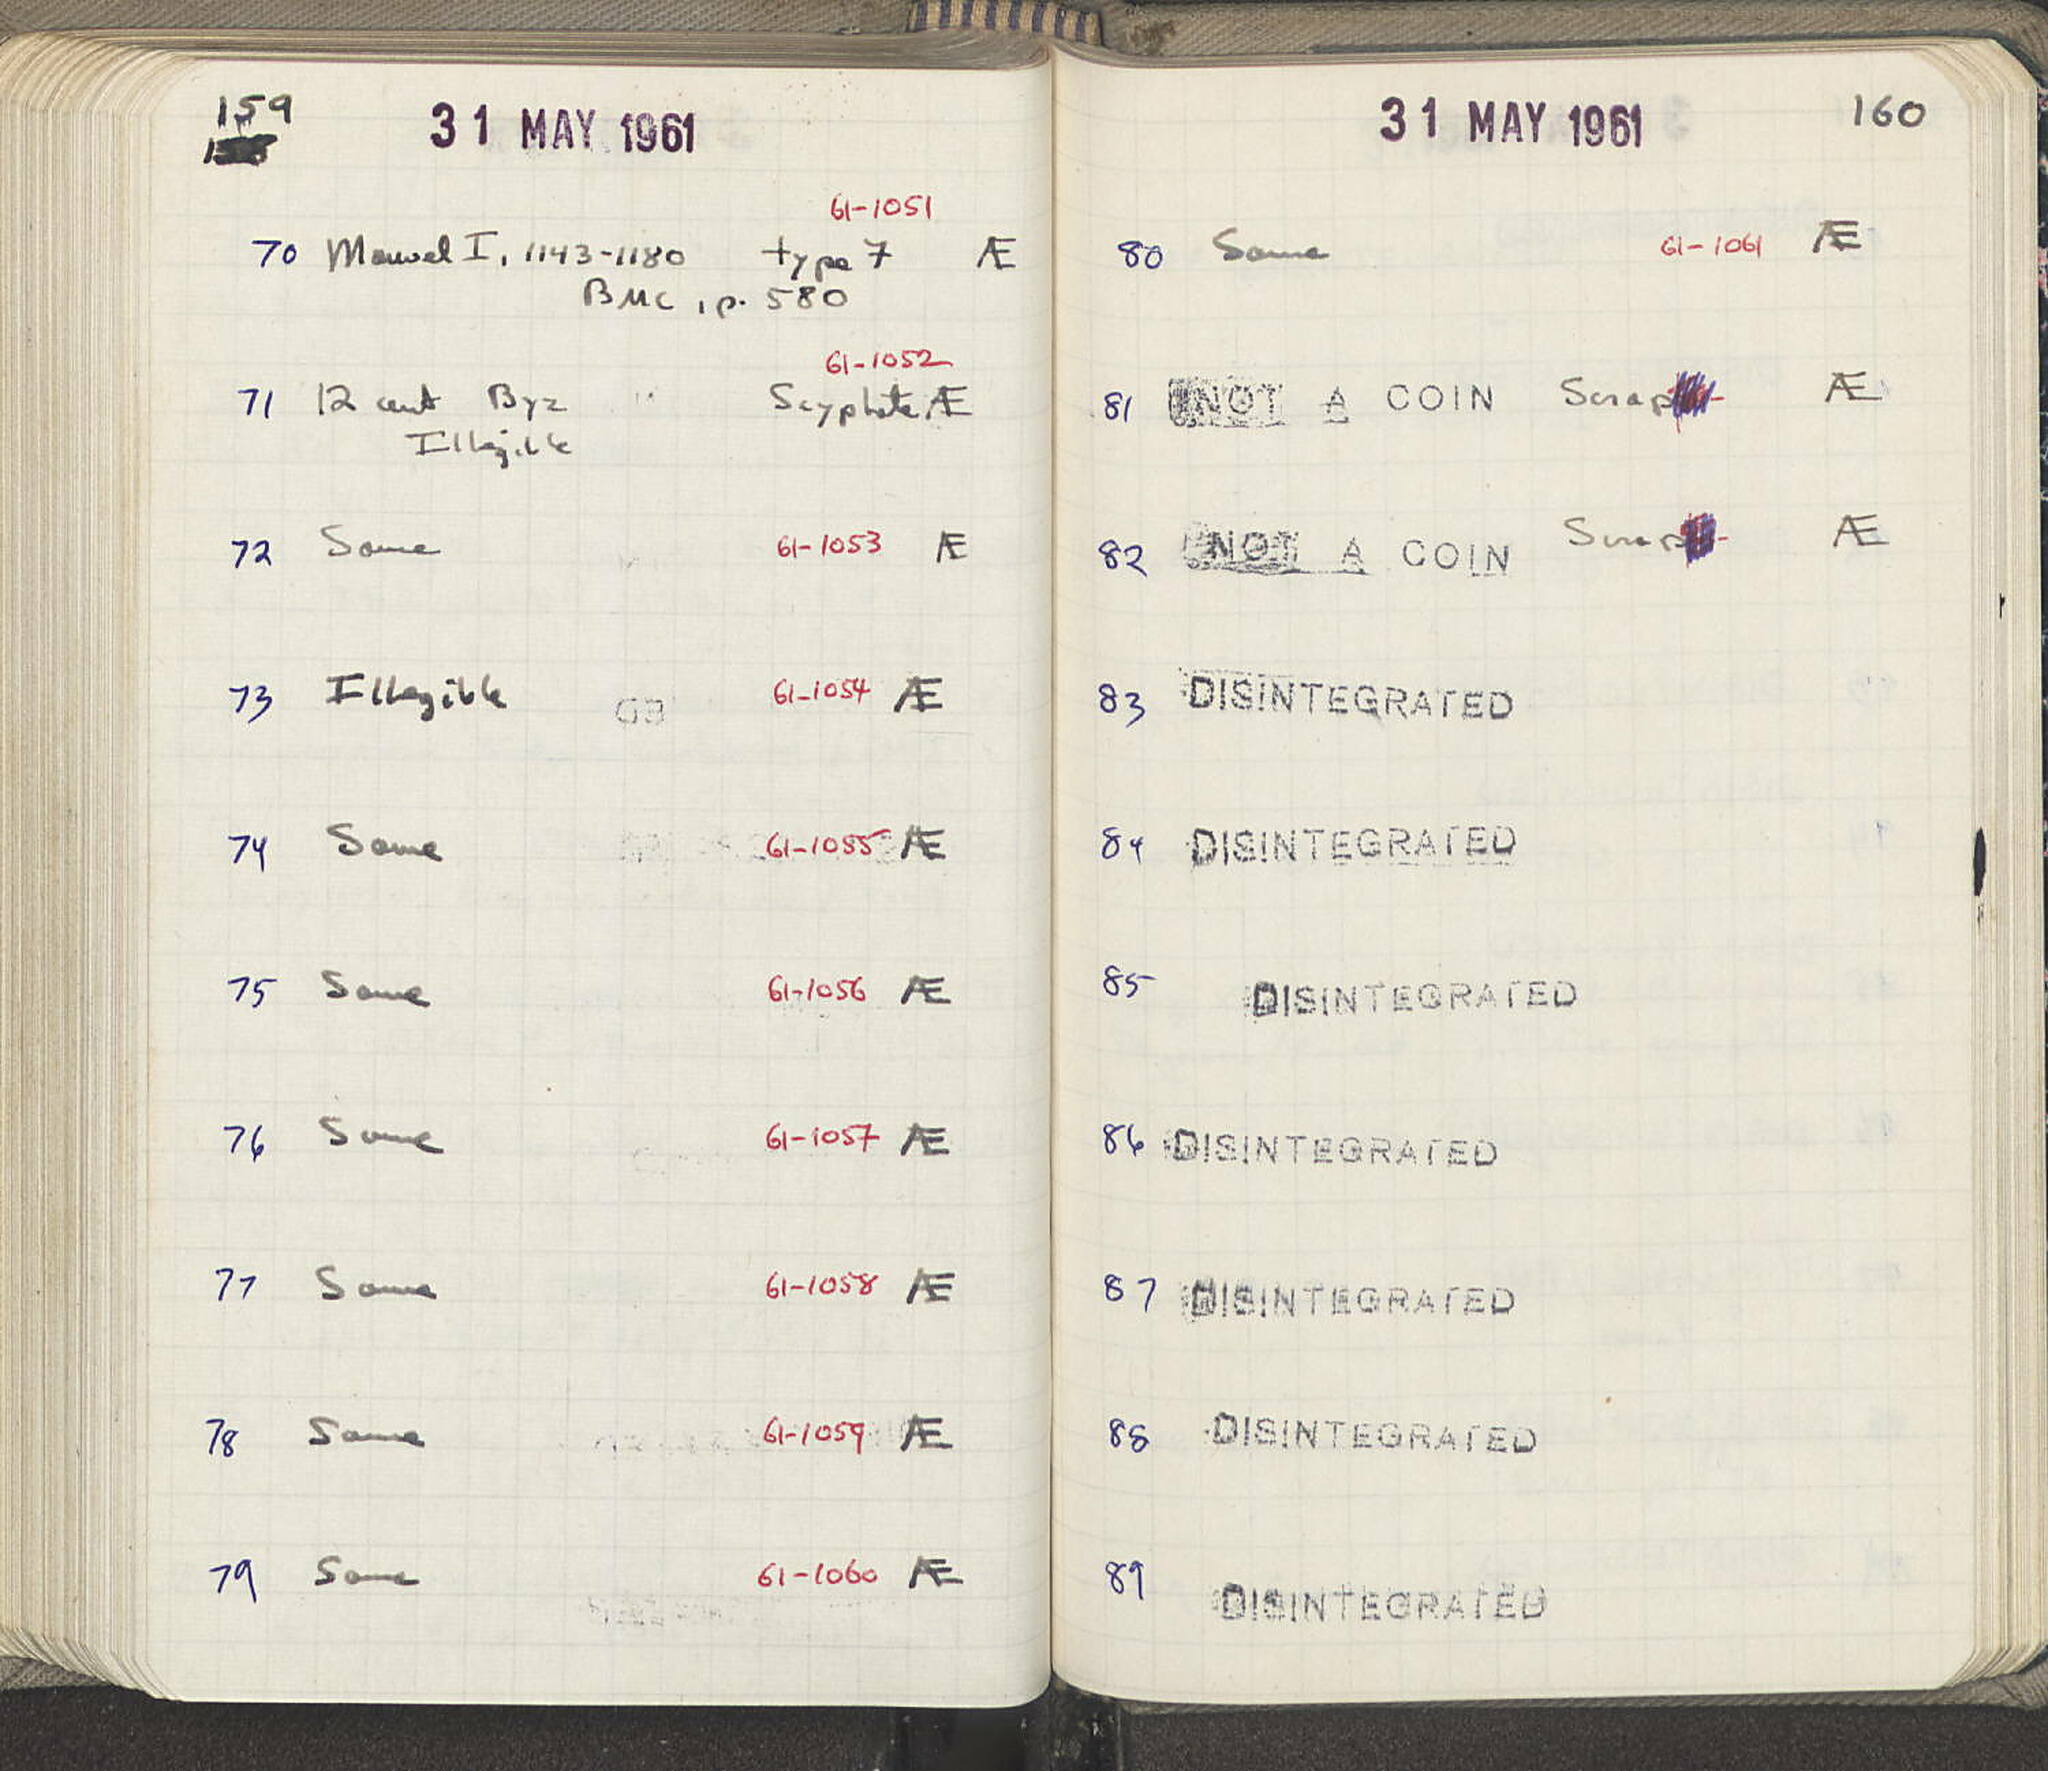 159
31 MAY 1961
61-1051
70 Manuel I, 1143-1180 type 7 Æ
BMC, p. 580
61-1052
71 12 cent Byz Scyphate Æ
Illegible
72 Same 61-1053 Æ
73 Illegible 61-1054 Æ
74 Same 61-1055 Æ
75 Same 61-1056 Æ
76 Same 61-1057 Æ
77 Same 61-1058 Æ
78 Same 61-1059 Æ
79 Same 61-1060 Æ
31 MAY 1961 160
80 Same 61-1061 Æ
81 NOT A COIN Scrap Æ
82 NOT A COIN Scrap Æ
83 DISINTEGRATED
84 DISINTEGRATED
85 DISINTEGRATED
86 DISINTEGRATED
87 DISINTEGRATED
88 DISINTEGRATED
89 DISINTEGRATED